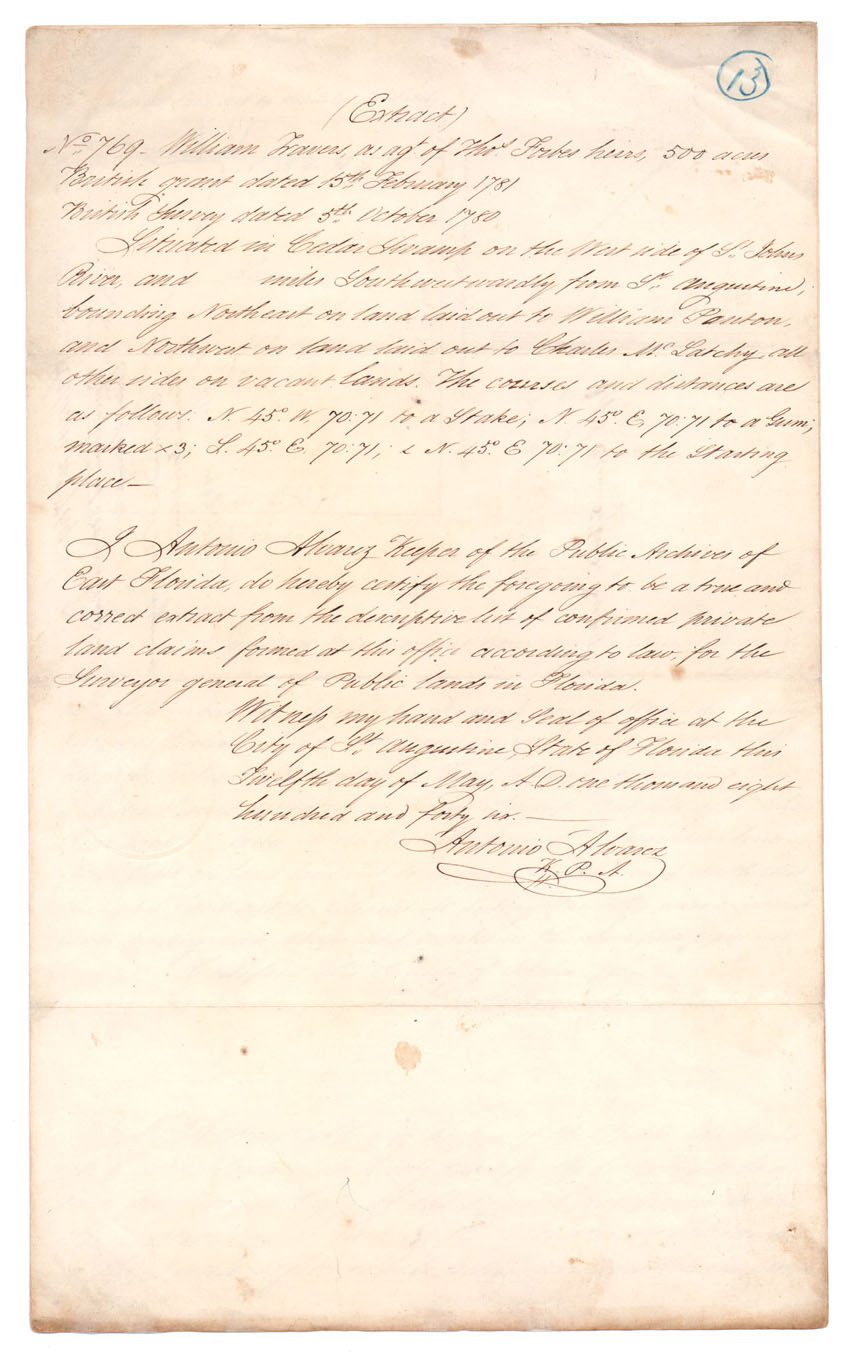 13
(Extract)
No. 769- William Travers, as agt. of Thos. Forbes heirs, 500 acres
British grant dated 15th. February 1781
British Survey dated 5th. October 1780
Situated in Cedar Swamp on the West side of St. Johns
River, and miles Southwestwardly from St. Augustine;
bounding Northeast on land laid out to William Panton,
and Northwest on land laid out to Charles Mc. Latchy, all
other sides on vacant lands. The courses and distances are
as follows: N. 45° W. 70:71 to a Stake; N. 45° E. 70:71 to a Gum;
marked x3; S. 45° E. 70:71; & N. 45° E 70:71 to the Starting
place—
I Antonio Alvarez Keeper of the Public Archives of
East Florida, do hereby certify the foregoing to be a true and
correct extract from the descriptive list of confirmed private
land claims formed at this office according to law, for the
Surveyor general of Public lands in Florida.
Witness my hand and Seal of office at the
City of St. Augustine, State of Florida this
Twelfth day of May, A.D. one thousand eight
hundred and forty six.—
Antonio Alvarez
K. P. A.